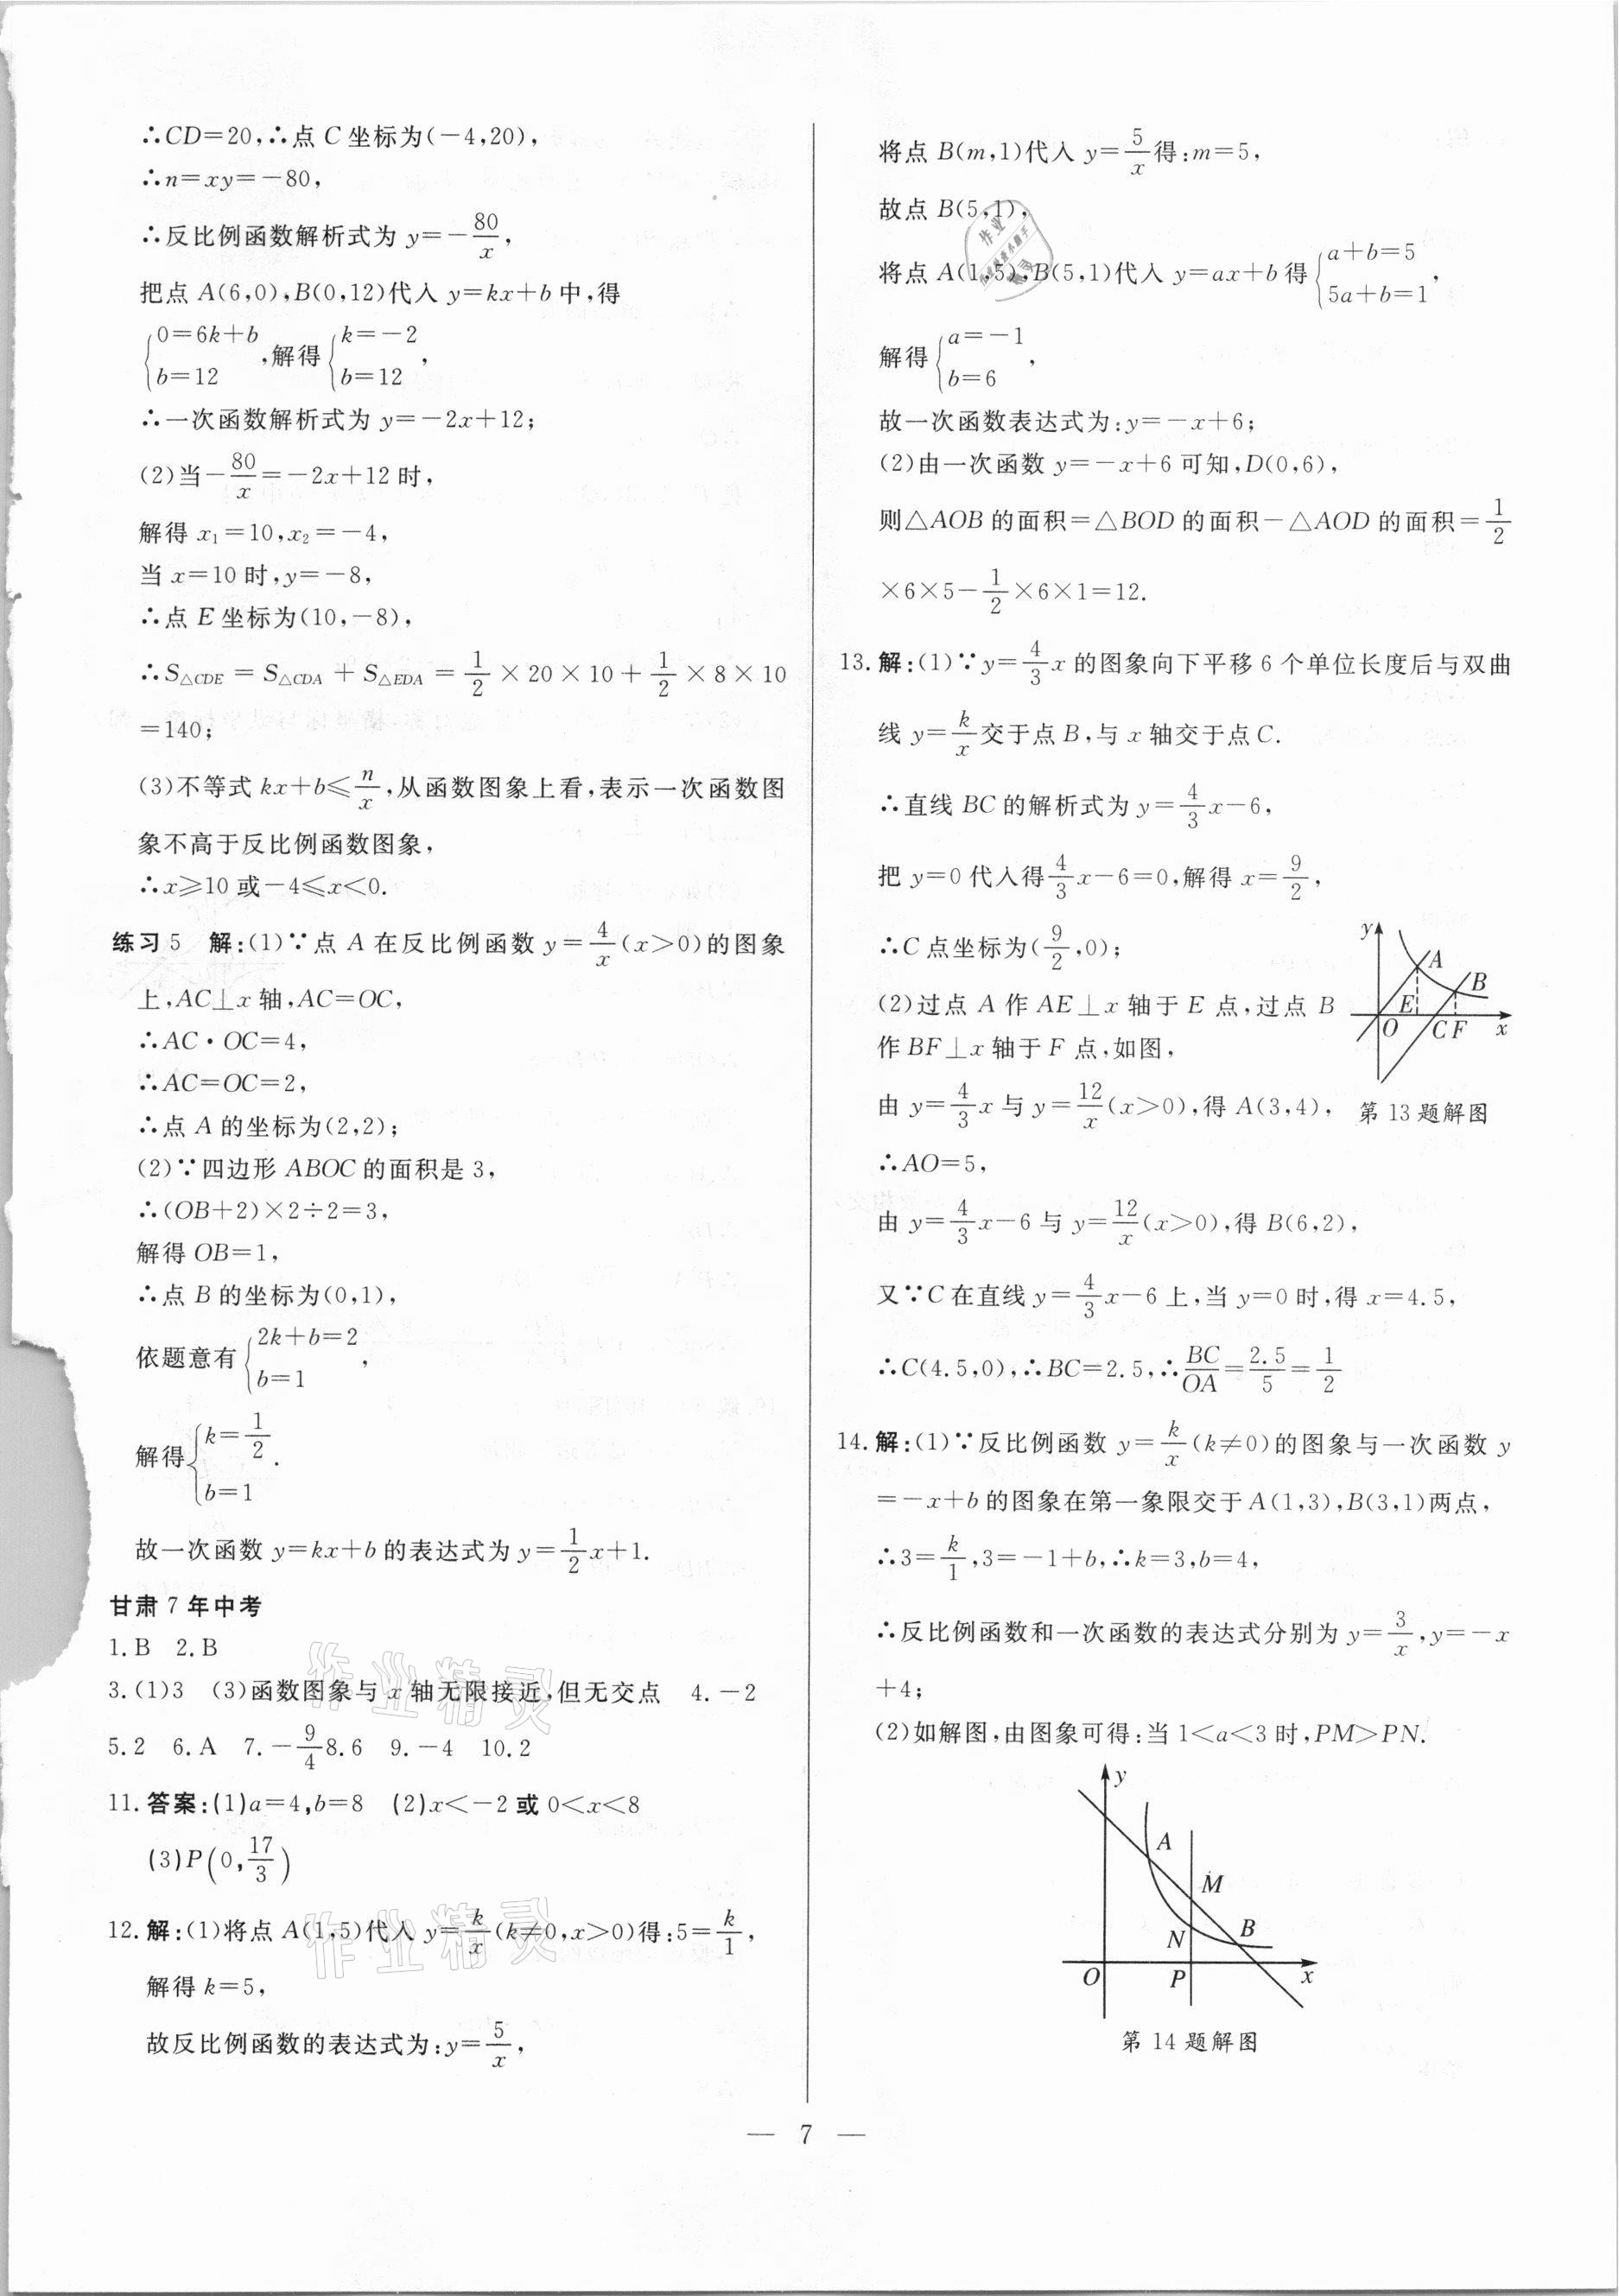 ∴CD=20,∴点 C 坐标为(-4,20),
∴n=xy=-80,
∴反比例函数解析式为 y=-80/x,
把点 A(6,0),B(0,12)代入 y=kx+b 中,得
{0=6k+b
b=12 ,解得{k=-2
b=12 ,
∴一次函数解析式为 y=-2x+12;
(2)当-80/x=-2x+12 时,
解得 x₁=10,x₂=-4,
当 x=10 时,y=-8,
∴点 E 坐标为(10,-8),
∴S△CDE = S△CDA + S△EDA = 1/2 × 20 × 10 + 1/2 × 8 × 10
=140;
(3)不等式 kx+b≤n/x,从函数图象上看,表示一次函数图
象不高于反比例函数图象,
∴x≥10 或-4≤x<0.
练习 5 解:(1)∵点 A 在反比例函数 y=4/x(x>0)的图象
上,AC⊥x 轴,AC=OC,
∴AC·OC=4,
∴AC=OC=2,
∴点 A 的坐标为(2,2);
(2)∵四边形 ABOC 的面积是 3,
∴(OB+2)×2÷2=3,
解得 OB=1,
∴点 B 的坐标为(0,1),
依题意有{2k+b=2
b=1 ,
解得{k=1/2
b=1 .
故一次函数 y=kx+b 的表达式为 y=1/2x+1.
甘肃 7 年中考
1.B 2.B
3.(1)3 (3)函数图象与 x 轴无限接近,但无交点 4.-2
5.2 6.A 7.-9/4 8.6 9.-4 10.2
11.答案:(1)a=4,b=8 (2)x<-2或0<x<8
(3)P(0,17/3)
12.解:(1)将点 A(1,5)代入 y=k/x(k≠0,x>0)得:5=k/1,
解得 k=5,
故反比例函数的表达式为:y=5/x,
将点 B(m,1)代入 y=5/x得:m=5,
故点 B(5,1),
将点 A(1,5),B(5,1)代入 y=ax+b 得{a+b=5
5a+b=1 ,
解得{a=-1
b=6 ,
故一次函数表达式为:y=-x+6;
(2)由一次函数 y=-x+6 可知,D(0,6),
则△AOB 的面积=△BOD 的面积-△AOD 的面积=1/2
×6×5-1/2×6×1=12.
13.解:(1)∵y=4/3x 的图象向下平移 6 个单位长度后与双曲
线 y=k/x交于点 B,与 x 轴交于点 C.
∴直线 BC 的解析式为 y=4/3x-6,
把 y=0 代入得4/3x-6=0,解得 x=9/2,
∴C 点坐标为(9/2,0);
(2)过点 A 作 AE⊥x 轴于 E 点,过点 B
作 BF⊥x 轴于 F 点,如图,
由 y=4/3x 与 y=12/x(x>0),得 A(3,4),
∴AO=5,
由 y=4/3x-6 与 y=12/x(x>0),得 B(6,2),
又∵C 在直线 y=4/3x-6 上,当 y=0 时,得 x=4.5,
∴C(4.5,0),∴BC=2.5,∴BC/OA=2.5/5=1/2
y
A
B
E
O
C F
x
第 13 题解图
14.解:(1)∵反比例函数 y=k/x(k≠0)的图象与一次函数 y
=-x+b 的图象在第一象限交于 A(1,3),B(3,1)两点,
∴3=k/1,3=-1+b,∴k=3,b=4,
∴反比例函数和一次函数的表达式分别为 y=3/x,y=-x
+4;
(2)如解图,由图象可得:当 1<a<3 时,PM>PN.
y
A
M
N
B
O
P
x
第 14 题解图
— 7 —
作业精灵
作业精灵
作业
精灵